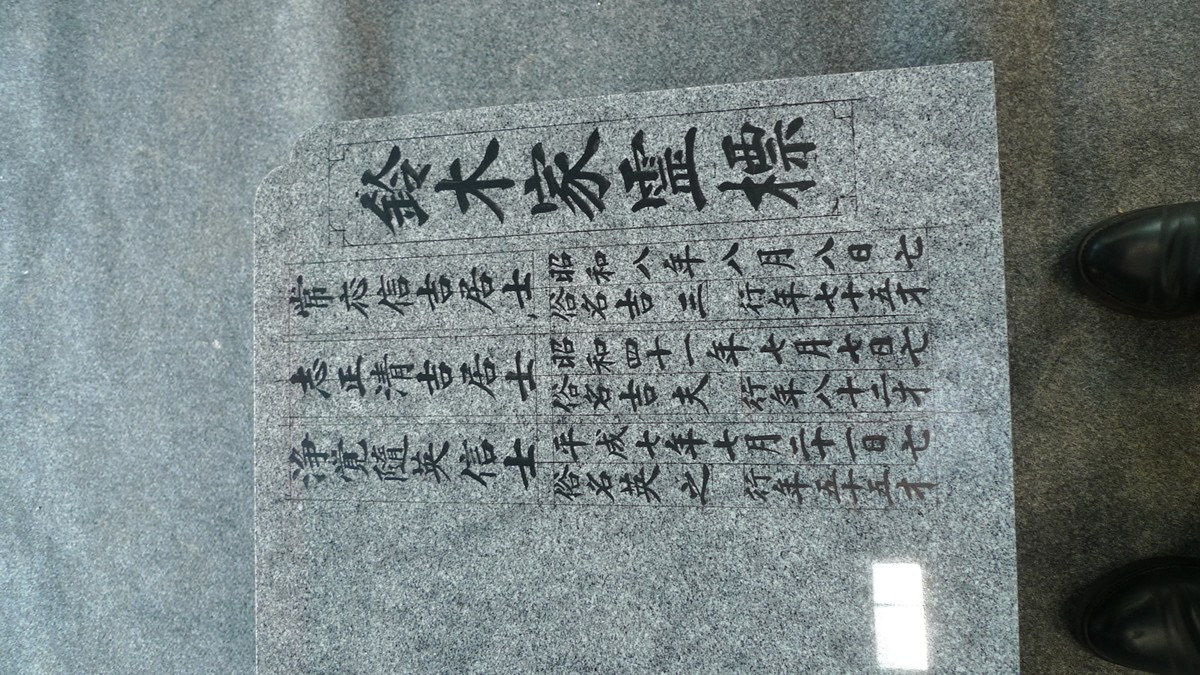 鈴木家霊標
常志信吉居士
昭和八年八月八日亡
俗名吉三 行年七十五才
志正清吉居士
昭和四十一年七月七日亡
俗名吉夫 行年八十二才
浄寛随英信士
平成七年七月二十一日亡
俗名英之 行年五十五才